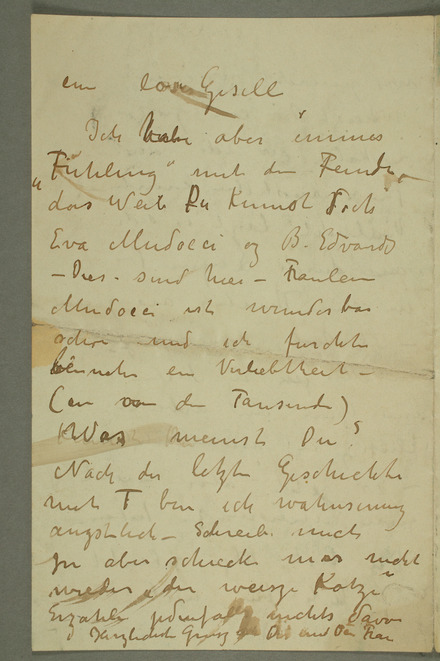 ein loser Gesell
Ich habe aber immer
"Fühling" mit den Feinde,
das Weib Die Kunnst Trots
Eva Mudocci og B. Edwards
– Dies – sind hier – Fraulein
Mudocci ist wunderbar
schön und ich furchte
beinahe ein Verliebtheit –
(en von den Tausende)
(Was meinst Du?
Nach der letzte Geschichte
mit T bin ich wahnsinnig
angstlich – Schreib mich
je aber schrecke mir nicht
wieder "die weisze Katze"
Erzahle jedenfalls nichts davon
Herzlichst Gruss an Dir und Dein Frau